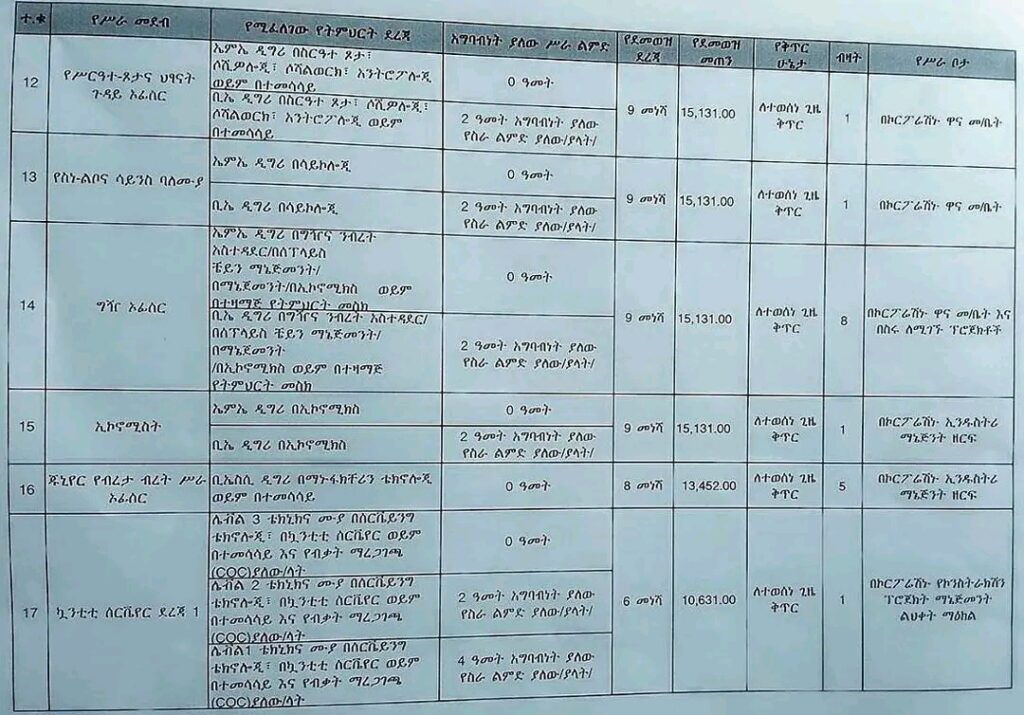 ተ.ቁ
የሥራ መደብ
የሚፈለገው የትምህርት ደረጃ
አግባብነት ያለው ሥራ ልምድ
የደመወዝ
ደረጃ
የደመወዝ
መጠን
የቅጥር
ሁኔታ
ብዛት
የሥራ ቦታ
12
የሥርዓተ-ጾታና ህፃናት
ጉዳይ ኦፊሰር
ኤምኤ ዲግሪ በስርዓተ ጾታ፣
ሶሺዎሎጂ፣ ሶሻልወርክ፣ አንትሮፖሎጂ
ወይም በተመሳሳይ
0 ዓመት
ቢኤ ዲግሪ በስርዓተ ጾታ፣ ሶሺዎሎጂ፣
ሶሻልወርክ፣ አንትሮፖሎጂ ወይም
በተመሳሳይ
2 ዓመት አግባብነት ያለው
የስራ ልምድ ያለው/ያላት/
9 መነሻ
15,131.00
ለተወሰነ ጊዜ
ቅጥር
1
በኮርፖሬሽኑ ዋና መ/ቤት
13
የስነ-ልቦና ሳይንስ ባለሙያ
ኤምኤ ዲግሪ በሳይኮሎጂ
0 ዓመት
ቢኤ ዲግሪ በሳይኮሎጂ
2 ዓመት አግባብነት ያለው
የስራ ልምድ ያለው/ያላት/
9 መነሻ
15,131.00
ለተወሰነ ጊዜ
ቅጥር
1
በኮርፖሬሽኑ ዋና መ/ቤት
14
ግዥ ኦፊሰር
ኤምኤ ዲግሪ በግዥና ንብረት
አስተዳደር/በሰፕላይስ
ቼይን ማኔጅመንት/
በማኔጀመንት/በኢኮኖሚክስ ወይም
በተዛማጅ የትምህርት መስክ
0 ዓመት
ቢኤ ዲግሪ በግዥና ንብረት አስተዳደር/
በሰፕላይስ ቼይን ማኔጅመንት/
በማኔጀመንት
/በኢኮኖሚክስ ወይም በተዛማጅ
የትምህርት መስክ
2 ዓመት አግባብነት ያለው
የስራ ልምድ ያለው/ያላት/
9 መነሻ
15,131.00
ለተወሰነ ጊዜ
ቅጥር
8
በኮርፖሬሽኑ ዋና መ/ቤት እና
በስሩ ለሚገኙ ፕሮጀክቶች
15
ኢኮኖሚስት
ኤምኤ ዲግሪ በኢኮኖሚክስ
0 ዓመት
ቢኤ ዲግሪ በኢኮኖሚክስ
2 ዓመት አግባብነት ያለው
የስራ ልምድ ያለው/ያላት/
9 መነሻ
15,131.00
ለተወሰነ ጊዜ
ቅጥር
1
በኮርፖሬሽኑ ኢንዱስትሪ
ማኔጅንት ዘርፍ
16
ጁኒየር የብረታ ብረት ሥራ
ኦፊሰር
ቢኤስሲ ዲግሪ በማኑፋክቸሪን ቴክኖሎጂ
ወይም በተመሳሳይ
0 ዓመት
8 መነሻ
13,452.00
ለተወሰነ ጊዜ
ቅጥር
5
በኮርፖሬሽኑ ኢንዱስትሪ
ማኔጅንት ዘርፍ
17
ኳንቲቲ ሰርቬየር ደረጃ 1
ሌብል 3 ቴክኒክና ሙያ በሰርቬይንግ
ቴክኖሎጂ፣ በኳንቲቲ ሰርቬየር ወይም
በተመሳሳይ እና የብቃት ማረጋገጫ
(COC)ያለው/ላት
0 ዓመት
ሌብል 2 ቴክኒክና ሙያ በሰርቬይንግ
ቴክኖሎጂ፣ በኳንቲቲ ሰርቬየር ወይም
በተመሳሳይ እና የብቃት ማረጋገጫ
(COC)ያለው/ላት
2 ዓመት አግባብነት ያለው
የስራ ልምድ ያለው/ያላት/
ሌብል1 ቴክኒክና ሙያ በሰርቬይንግ
ቴክኖሎጂ፣ በኳንቲቲ ሰርቬየር ወይም
በተመሳሳይ እና የብቃት ማረጋገጫ
(COC)ያለው/ላት
4 ዓመት አግባብነት ያለው
የስራ ልምድ ያለው/ያላት/
6 መነሻ
10,631.00
ለተወሰነ ጊዜ
ቅጥር
1
በኮርፖሬሽኑ የኮንስትራክሽን
ፕሮጀክት ማኔጅመንት
ልህቀት ማዕከል